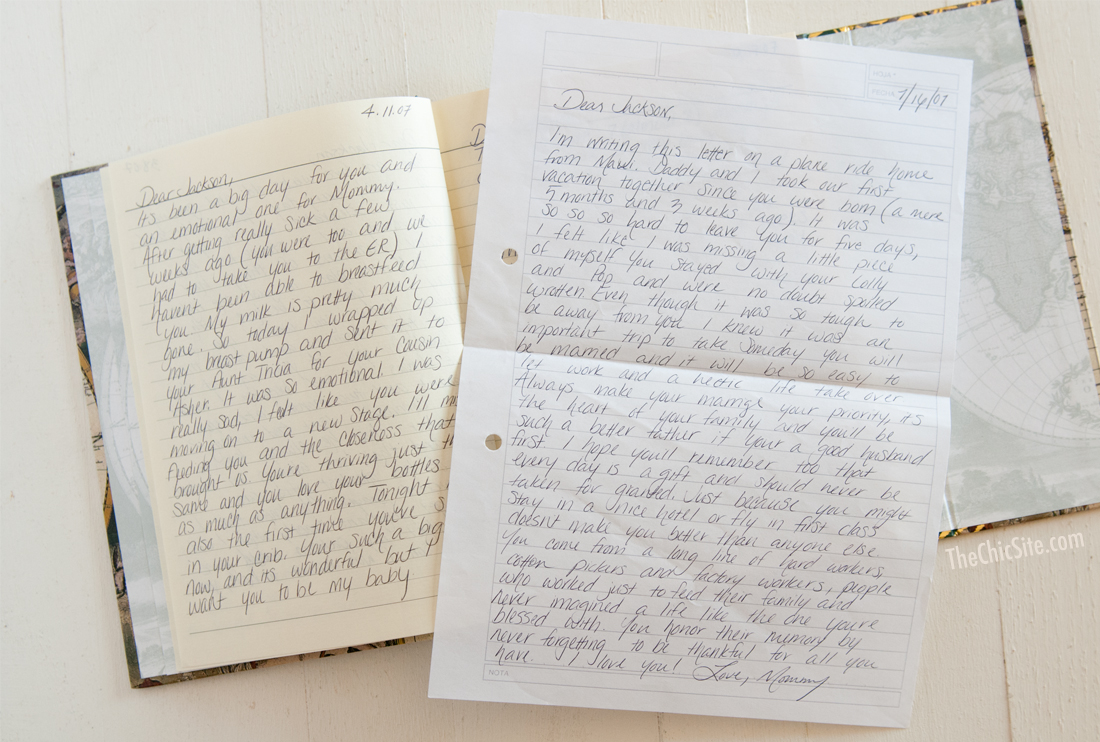 4.11.07
Dear Jackson,
Its been a big day for you and
an emotional one for Mommy.
After getting really sick a few
weeks ago (you were too and we
had to take you to the ER) I
havent been able to breastfeed
you. My milk is pretty much
gone so today I wrapped up
my breast pump and sent it to
your Aunt Tricia for your cousin
Asher. It was so emotional I was
really sad, I felt like you were
moving on to a new stage. I'll
feeding you and the closeness that
brought us youre thriving just
same and you love your bottles
as much as anything. Tonight
also the first time you've
in your crib. Your such a big
now, and its wonderful but
want you to be my baby
HOJA
FECHA
7/16/07
Dear Jackson,
I'm writing this letter on a plane ride home
from Maui. Daddy and I took our first
vacation together since you were born (a mere
5 months and 3 weeks ago). It was
so so so hard to leave you for five days,
I felt like I was missing a little piece
of myself you stayed with your Lolly
and Pop and were no doubt spoiled
wrotten. Even though it was so tough to
be away from you I knew it was an
important trip to take Someday you will
be married and it will be so easy to
let work and a hectic life take over
Always make your marrige your priority, its
the heart of your family and youll be
such a better father if your a good husband
first. I hope youll remember too that
every day is a gift and should never be
taken for granted. Just because you might
stay in a nice hotel or fly in first class
doesnt make you better than anyone else
you come from a long line of hard workers,
cotton pickers and factory workers, people
who worked just to feed their family and
never imagined a life like the one youre
blessed with. You honor their memory by
never forgetting to be thankful for all you
have. I love you! Love, Mommy
NOTA
TheChicSite.com